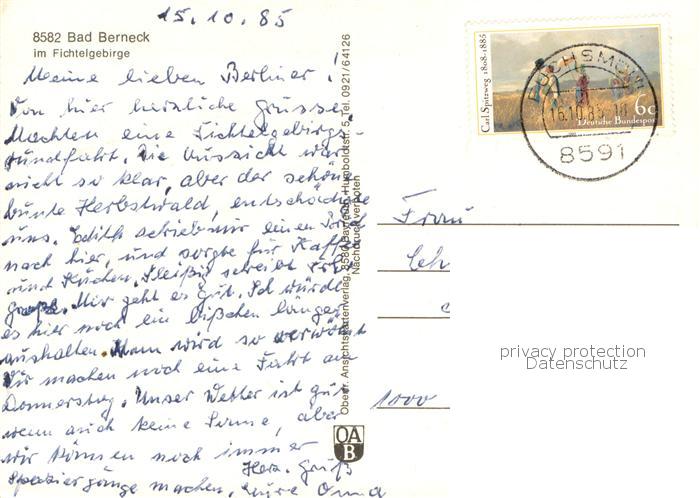 15.10.85
8582 Bad Berneck
im Fichtelgebirge
Meine lieben Berliner!
Von hier herzliche Grüsse.
Machten eine Fichtelgebirgs-
rundfahrt. Die Aussicht war
nicht so klar, aber der schöne
bunte Herbstwald, entschädigte
uns. Edith schrieb mir einen Brief
nach hier, und sorgte für Kaffee
und Kuchen. Fleißig schreibt
Mir geht es gut. Ich würde
es hier noch ein bißchen länger
aushalten. Man wird so verwöhnt
Wir machen noch eine Fahrt am
Donnerstag. Unser Wetter ist gut
wenn auch keine Sonne, aber
wir können noch immer
Spaziergänge machen. Herz. Gruß
Eure Oma
Oberfr. Ansichtskartenverlag, 8580 Bayreuth, Hugboldtstr. 5, Tel. 0921/64126
Nachdruck verboten
OA
B
Carl Spitzweg 1808-1885
60
Deutsche Bundespost
FUCHSMÜHL
8591
Frau
1000
privacy protection
Datenschutz